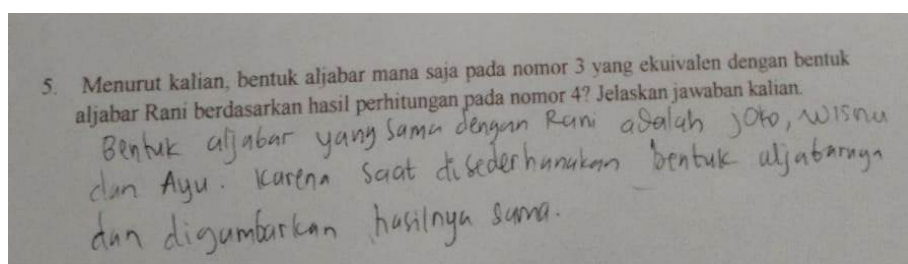 5. Menurut kalian, bentuk aljabar mana saja pada nomor 3 yang ekuivalen dengan bentuk
aljabar Rani berdasarkan hasil perhitungan pada nomor 4? Jelaskan jawaban kalian.
Bentuk aljabar yang sama dengan Rani adalah joko, wisnu
dan Ayu. Karena saat disederhanakan bentuk aljabarnya
dan digambarkan hasilnya sama.